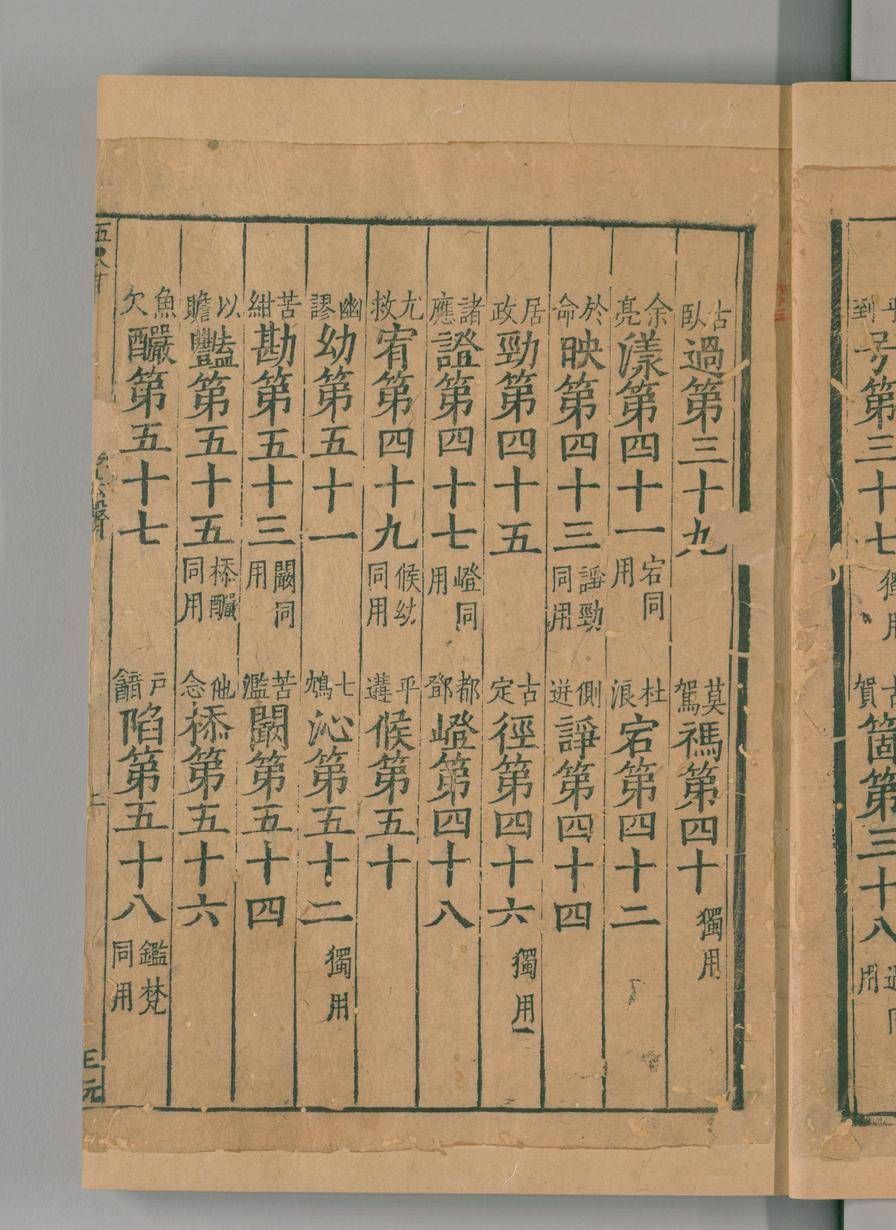 到号第三十七獨用 古賀箇第三十八過同用
古臥過第三十九 莫駕禡第四十獨用
余亮漾第四十一宕同用 杜浪宕第四十二
於命映第四十三諍勁同用 側迸諍第四十四
居政勁第四十五 古定徑第四十六獨用
諸應證第四十七嶝同用 都鄧嶝第四十八
尤救宥第四十九候幼同用 平遘候第五十
幽謬幼第五十一 七鴆沁第五十二獨用
苦紺勘第五十三闞同用 苦濫闞第五十四
以贍豔第五十五㮇釅同用 他念㮇第五十六
魚欠釅第五十七 戶韽陷第五十八鑑梵同用
王元